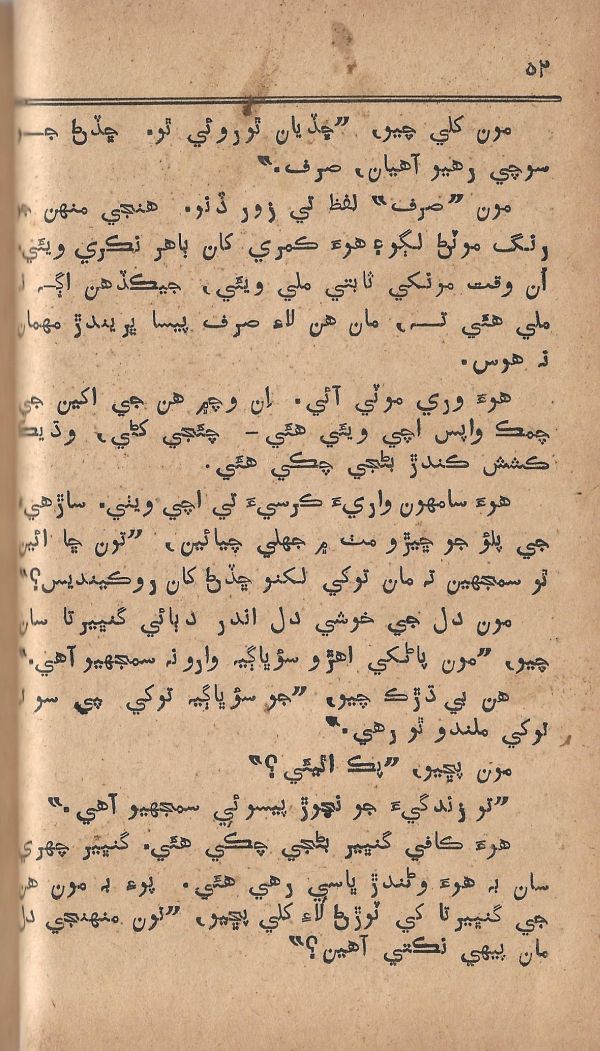 ٥٢
مون کلي چيو، ”ڇڏيان ٿوروئي ٿو. ڇڏڻ جو
سوچي رهيو آهيان، صرف.“
مون ”صرف“ لفظ تي زور ڏنو. هنجي منهن جو
رنگ موٽڻ لڳو؛ هوءَ ڪمري کان ٻاهر نڪري ويئي.
اُن وقت مونکي ثابتي ملي ويئي، جيڪڏهن اڳـہ نہ
ملي هئي تـہ، مان هن لاءِ صرف پيسا ڀريندڙ مهمان
نہ هوس.
هوءَ وري موٽي آئي. اِن وچ۾ هن جي اکين جي
چمڪ واپس اچي ويئي هئي – چئجي کڻي، وڌيڪ
ڪشش ڪندڙ بڻجي چڪي هئي.
هوءَ سامهون واريءَ ڪرسيءَ تي اچي ويٺي. ساڙهيءَ
جي پلؤ جو ڇيڙو مٺ ۾ جهلي چيائين، ”تون ڇا ائين
ٿو سمجهين تہ مان توکي لکنو ڇڏڻ کان روڪينديس؟“
مون دل جي خوشي دل اندر دٻائي گنڀيرتا سان
چيو، ”مون پاڻکي اهڙو سؤڀاڳيہ وارو نہ سمجهيو آهي.“
هن بي ڌڙڪ چيو، ”جو سؤڀاڳيہ توکي پيسو نہ
توکي ملندو ٿو رهي.“
مون پڇيو، ”پڪ اٿيئي؟“
”تو زندگيءَ جو نچوڙ پيسوئي سمجهيو آهي.“
هوءَ ڪافي گنڀير بڻجي چڪي هئي. گنڀير چهري
سان بہ هوءَ وڻندڙ ڀاسي رهي هئي. پوءِ بہ مون هن
جي گنڀيرتا کي ٽوڙڻ لاءِ کلي پڇيو، ”تون منهنجي دل
مان پيهي نڪتي آهين؟“